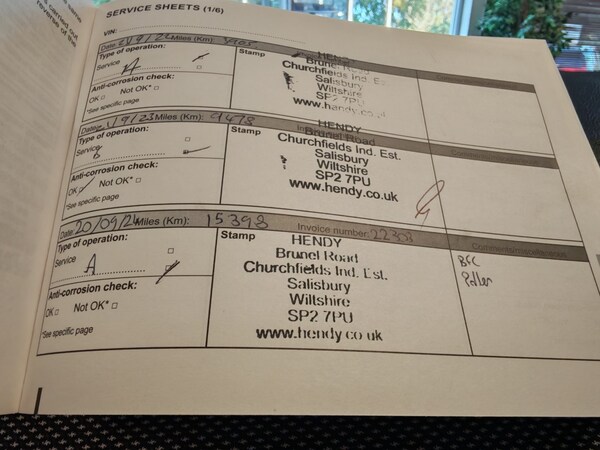 SERVICE SHEETS (1/6)
VIN:
Date: Miles (Km):
Type of operation:
Service A
Anti-corrosion check:
OK □ Not OK* □
*See specific page
Stamp
HENDY
Brunel Road
Churchfields Ind. Est.
Salisbury
Wiltshire
SP2 7PU
www.hendy.co.uk
Date: /9/23 Miles (Km): 9478
Type of operation:
Service
Anti-corrosion check:
OK Not OK* □
*See specific page
Stamp
HENDY
Brunel Road
Churchfields Ind. Est.
Salisbury
Wiltshire
SP2 7PU
www.hendy.co.uk
Date: 20/09/24 Miles (Km): 15398 Invoice number:
Type of operation:
Service A
Anti-corrosion check:
OK □ Not OK* □
*See specific page
Stamp
HENDY
Brunel Road
Churchfields Ind. Est.
Salisbury
Wiltshire
SP2 7PU
www.hendy.co.uk
carried out
reverse of the